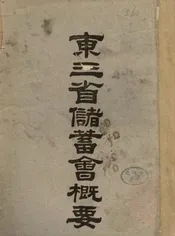 東三省儲蓄會概要